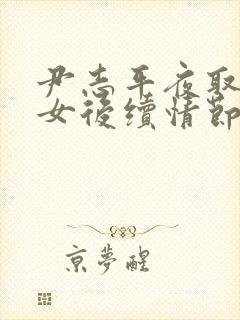 尹志平夜取
女後續情節
京夢醒